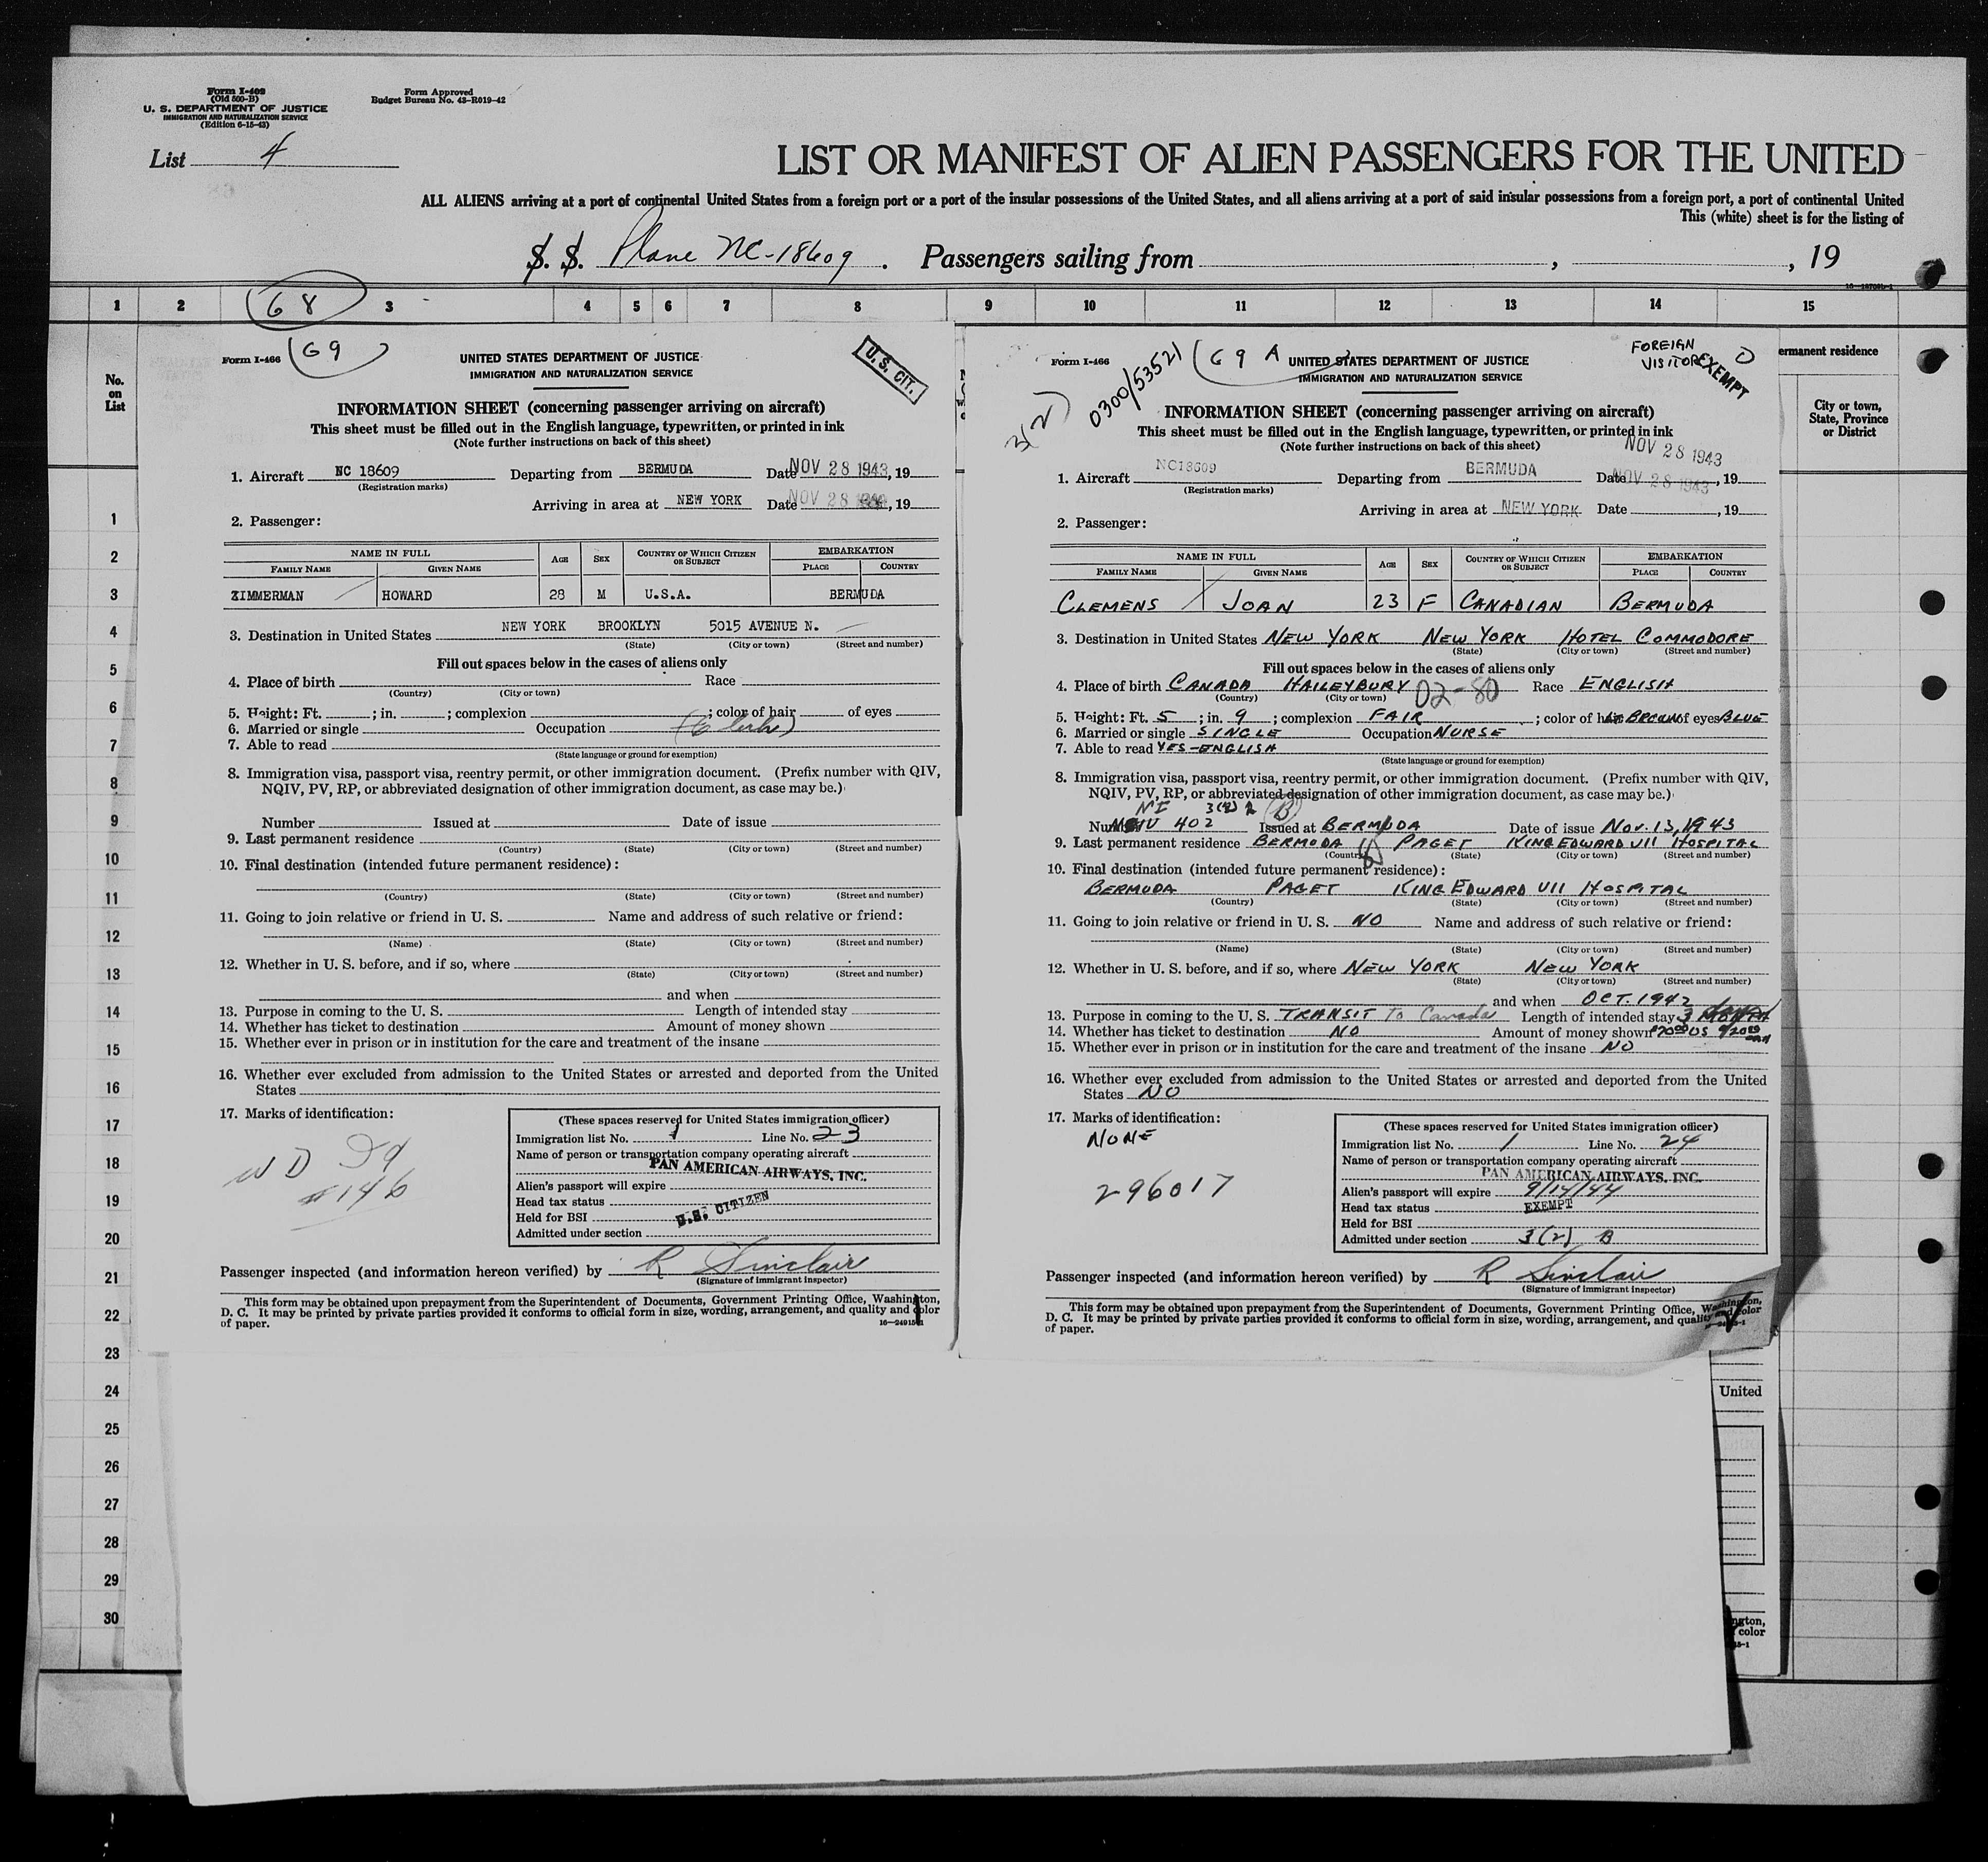 Form I-409
(Old 500-B)
U. S. DEPARTMENT OF JUSTICE
IMMIGRATION AND NATURALIZATION SERVICE
(Edition 6-15-43)
Form Approved
Budget Bureau No. 43-R019-42
List 4
LIST OR MANIFEST OF ALIEN PASSENGERS FOR THE UNITED
ALL ALIENS arriving at a port of continental United States from a foreign port or a port of the insular possessions of the United States, and all aliens arriving at a port of said insular possessions from a foreign port, a port of continental United
This (white) sheet is for the listing of
S. S. Plane NC-18609. Passengers sailing from , , 19
1 2 68 3 4 5 6 7 8 9 10 11 12 13 14 15
No.
on
List
1
2
3
4
5
6
7
8
9
10
11
12
13
14
15
16
17
18
19
20
21
22
23
24
25
26
27
28
29
30
Form I-466 69
U.S. CIT.
UNITED STATES DEPARTMENT OF JUSTICE
IMMIGRATION AND NATURALIZATION SERVICE
INFORMATION SHEET (concerning passenger arriving on aircraft)
This sheet must be filled out in the English language, typewritten, or printed in ink
(Note further instructions on back of this sheet)
1. Aircraft NC 18609 Departing from BERMUDA Date NOV 28 1943, 19
(Registration marks)
Arriving in area at NEW YORK Date NOV 28 , 19
2. Passenger:
NAME IN FULL AGE SEX COUNTRY OF WHICH CITIZEN OR SUBJECT EMBARKATION
FAMILY NAME GIVEN NAME PLACE COUNTRY
ZIMMERMAN HOWARD 28 M U.S.A. BERMUDA
3. Destination in United States NEW YORK BROOKLYN 5015 AVENUE N.
(State) (City or town) (Street and number)
Fill out spaces below in the cases of aliens only
4. Place of birth Race
(Country) (City or town)
5. Height: Ft. ; in. ; complexion ; color of hair of eyes
6. Married or single Occupation
7. Able to read
(State language or ground for exemption)
8. Immigration visa, passport visa, reentry permit, or other immigration document. (Prefix number with QIV,
NQIV, PV, RP, or abbreviated designation of other immigration document, as case may be.)
Number Issued at Date of issue
9. Last permanent residence
(Country) (State) (City or town) (Street and number)
10. Final destination (intended future permanent residence):
(Country) (State) (City or town) (Street and number)
11. Going to join relative or friend in U. S. Name and address of such relative or friend:
(Name) (State) (City or town) (Street and number)
12. Whether in U. S. before, and if so, where
(State) (City or town) (Street and number)
and when
13. Purpose in coming to the U. S. Length of intended stay
14. Whether has ticket to destination Amount of money shown
15. Whether ever in prison or in institution for the care and treatment of the insane
16. Whether ever excluded from admission to the United States or arrested and deported from the United
States
17. Marks of identification:
WD
#146
(These spaces reserved for United States immigration officer)
Immigration list No. 1 Line No. 23
Name of person or transportation company operating aircraft
PAN AMERICAN AIRWAYS, INC.
Alien's passport will expire
Head tax status
Held for BSI U.S. CITIZEN
Admitted under section
Passenger inspected (and information hereon verified) by R Sinclair
(Signature of immigrant inspector)
This form may be obtained upon prepayment from the Superintendent of Documents, Government Printing Office, Washington,
D. C. It may be printed by private parties provided it conforms to official form in size, wording, arrangement, and quality and color
of paper.
16-24915-1
Form I-466 0300/53521 69 A
3(2)
FOREIGN
VISITOR EXEMPT
UNITED STATES DEPARTMENT OF JUSTICE
IMMIGRATION AND NATURALIZATION SERVICE
INFORMATION SHEET (concerning passenger arriving on aircraft)
This sheet must be filled out in the English language, typewritten, or printed in ink
(Note further instructions on back of this sheet)
NOV 28 1943
1. Aircraft NC18609 Departing from BERMUDA Date NOV 28 1943, 19
(Registration marks)
Arriving in area at NEW YORK Date , 19
2. Passenger:
NAME IN FULL AGE SEX COUNTRY OF WHICH CITIZEN OR SUBJECT EMBARKATION
FAMILY NAME GIVEN NAME PLACE COUNTRY
CLEMENS JOAN 23 F CANADIAN BERMUDA
3. Destination in United States NEW YORK NEW YORK HOTEL COMMODORE
(State) (City or town) (Street and number)
Fill out spaces below in the cases of aliens only
4. Place of birth CANADA HAILEYBURY 02-80 Race ENGLISH
(Country) (City or town)
5. Height: Ft. 5 ; in. 9 ; complexion FAIR ; color of hair BROWN of eyes BLUE
6. Married or single SINGLE Occupation NURSE
7. Able to read YES-ENGLISH
(State language or ground for exemption)
8. Immigration visa, passport visa, reentry permit, or other immigration document. (Prefix number with QIV,
NQIV, PV, RP, or abbreviated designation of other immigration document, as case may be.)
Number 402 Issued at BERMUDA Date of issue NOV. 13, 1943
9. Last permanent residence BERMUDA PAGET KING EDWARD VII HOSPITAL
(Country) (State) (City or town) (Street and number)
10. Final destination (intended future permanent residence):
BERMUDA PAGET KING EDWARD VII HOSPITAL
(Country) (State) (City or town) (Street and number)
11. Going to join relative or friend in U. S. NO Name and address of such relative or friend:
(Name) (State) (City or town) (Street and number)
12. Whether in U. S. before, and if so, where NEW YORK NEW YORK
(State) (City or town) (Street and number)
and when OCT. 1942
13. Purpose in coming to the U. S. TRANSIT To Canada Length of intended stay 3
14. Whether has ticket to destination NO Amount of money shown
15. Whether ever in prison or in institution for the care and treatment of the insane NO
16. Whether ever excluded from admission to the United States or arrested and deported from the United
States NO
17. Marks of identification:
NONE
296017
(These spaces reserved for United States immigration officer)
Immigration list No. 1 Line No. 24
Name of person or transportation company operating aircraft
PAN AMERICAN AIRWAYS, INC.
Alien's passport will expire 9/14/44
Head tax status EXEMPT
Held for BSI
Admitted under section 3(2) B
Passenger inspected (and information hereon verified) by R Sinclair
(Signature of immigrant inspector)
This form may be obtained upon prepayment from the Superintendent of Documents, Government Printing Office, Washington,
D. C. It may be printed by private parties provided it conforms to official form in size, wording, arrangement, and quality and color
of paper.
ermanent residence
City or town,
State, Province
or District
United
ngton,
color